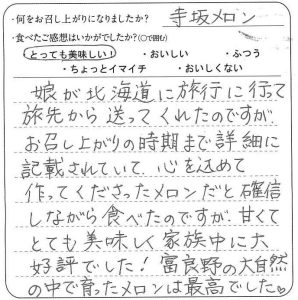 ・何をお召し上がりになりましたか？ 寺坂メロン
・食べたご感想はいかがでしたか？（○で囲む）
・とっても美味しい！ ・おいしい ・ふつう
・ちょっとイマイチ ・おいしくない
娘が北海道に旅行に行って
旅先から送ってくれたのですが
お召し上がりの時期まで詳細に
記載されていて 心を込めて
作ってくださったメロンだと確信
しながら食べたのですが、甘くて
とても美味しく家族中に大
好評でした！富良野の大自然
の中で育ったメロンは最高でした♡